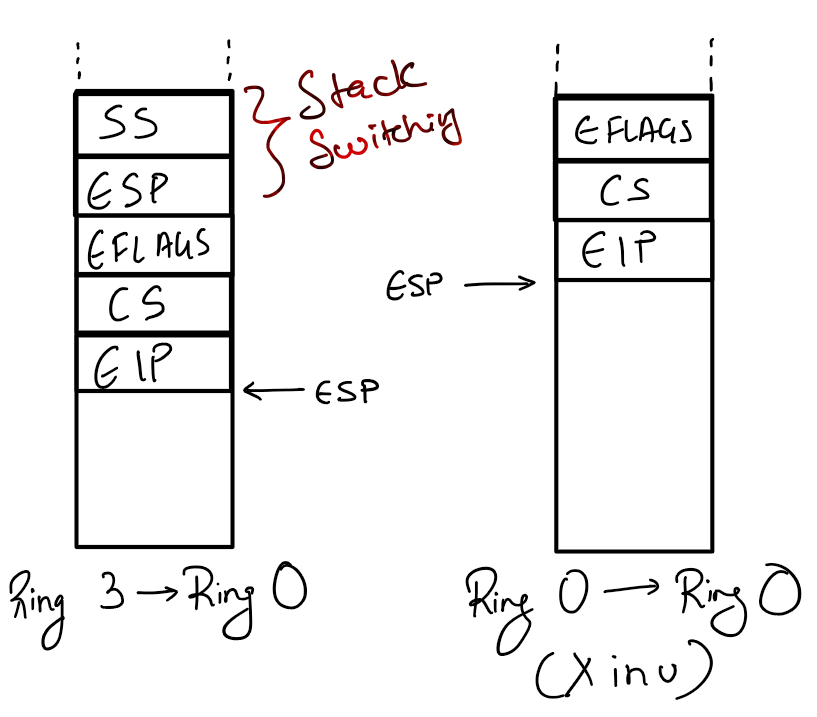 SS
ESP
EFLAGS
CS
EIP
Stack
Switching
ESP
Ring 3 → Ring 0
EFLAGS
CS
EIP
ESP
Ring 0 → Ring 0
(Xinu)